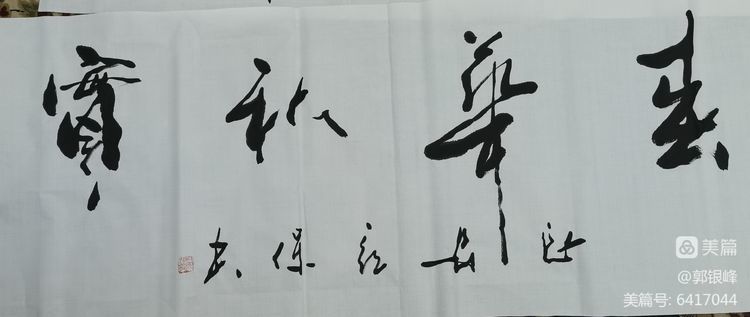 春華秋實
保書
美篇
@郭银峰
美篇号: 6417044